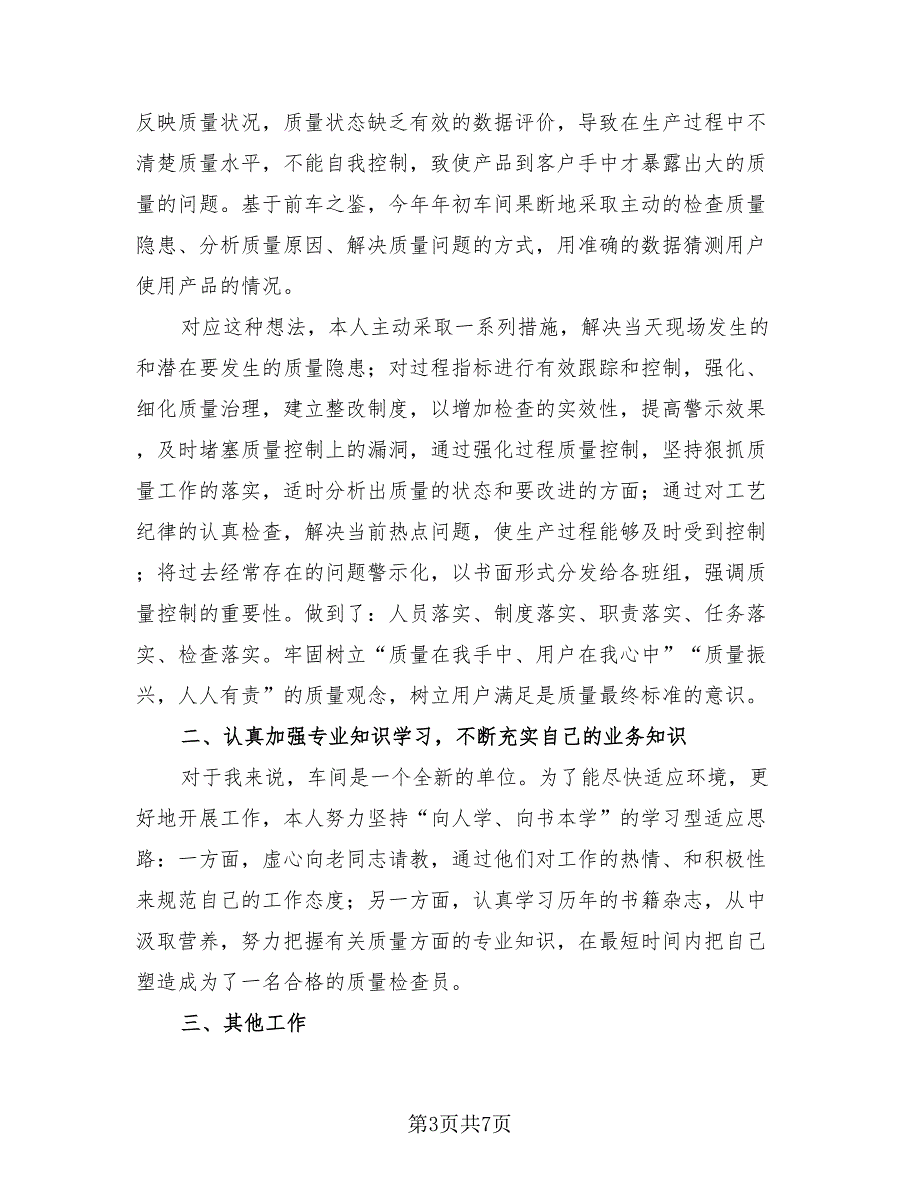 反映质量状况，质量状态缺乏有效的数据评价，导致在生产过程中不
清楚质量水平，不能自我控制，致使产品到客户手中才暴露出大的质
量的问题。基于前车之鉴，今年年初车间果断地采取主动的检查质量
隐患、分析质量原因、解决质量问题的方式，用准确的数据猜测用户
使用产品的情况。
对应这种想法，本人主动采取一系列措施，解决当天现场发生的
和潜在要发生的质量隐患；对过程指标进行有效跟踪和控制，强化、
细化质量治理，建立整改制度，以增加检查的实效性，提高警示效果
，及时堵塞质量控制上的漏洞，通过强化过程质量控制，坚持狠抓质
量工作的落实，适时分析出质量的状态和要改进的方面；通过对工艺
纪律的认真检查，解决当前热点问题，使生产过程能够及时受到控制
；将过去经常存在的问题警示化，以书面形式分发给各班组，强调质
量控制的重要性。做到了：人员落实、制度落实、职责落实、任务落
实、检查落实。牢固树立“质量在我手中、用户在我心中”“质量振
兴，人人有责”的质量观念，树立用户满足是质量最终标准的意识。
二、认真加强专业知识学习，不断充实自己的业务知识
对于我来说，车间是一个全新的单位。为了能尽快适应环境，更
好地开展工作，本人努力坚持“向人学、向书本学”的学习型适应思
路：一方面，虚心向老同志请教，通过他们对工作的热情、和积极性
来规范自己的工作态度；另一方面，认真学习历年的书籍杂志，从中
汲取营养，努力把握有关质量方面的专业知识，在最短时间内把自己
塑造成为了一名合格的质量检查员。
三、其他工作
第3页共7页